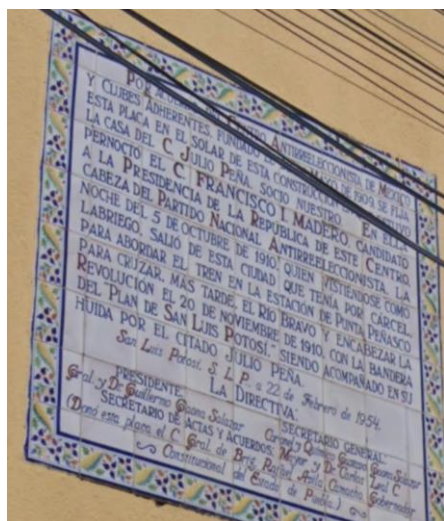 POR ACUERDO DEL CENTRO ANTIRREELECCIONISTA DE MÉXICO
Y CLUBES ADHERENTES, FUNDADO EL DE MAYO DE 1909, SE FIJA
ESTA PLACA EN EL SOLAR DE ESTA CONSTRUCCIÓN QUE
LA CASA DEL C. JULIO PEÑA, SOCIO NUESTRO. EN ELLA
PERNOCTÓ EL C. FRANCISCO I. MADERO, CANDIDATO
A LA PRESIDENCIA DE LA REPÚBLICA DE ESTE CENTRO
CABEZA DEL PARTIDO NACIONAL ANTIRREELECCIONISTA, LA
NOCHE DEL 5 DE OCTUBRE DE 1910, QUIEN VISTIÉNDOSE COMO
LABRIEGO, SALIÓ DE ESTA CIUDAD QUE TENÍA POR CÁRCEL,
PARA ABORDAR EL TREN EN LA ESTACIÓN DE PUNTA PEÑASCO
PARA CRUZAR, MÁS TARDE, EL RÍO BRAVO Y ENCABEZAR LA
REVOLUCIÓN EL 20 DE NOVIEMBRE DE 1910, CON LA BANDERA
DEL "PLAN DE SAN LUIS POTOSÍ," SIENDO ACOMPAÑADO EN SU
HUIDA POR EL CITADO JULIO PEÑA.
San Luis Potosí, S. L. P., a 22 de Febrero de 1954.
LA DIRECTIVA:
PRESIDENTE: SECRETARIO GENERAL:
Gral. y Dr. Guillermo Gaona Salazar Coronel y Químico Gustavo Gaona Salazar
SECRETARIO DE ACTAS Y ACUERDOS: Mayor y Dr. Carlos Leal C.
(Donó esta placa el C. Gral. de Bgda. Rafael Avila Camacho, Gobernador
Constitucional del Estado de Puebla.)